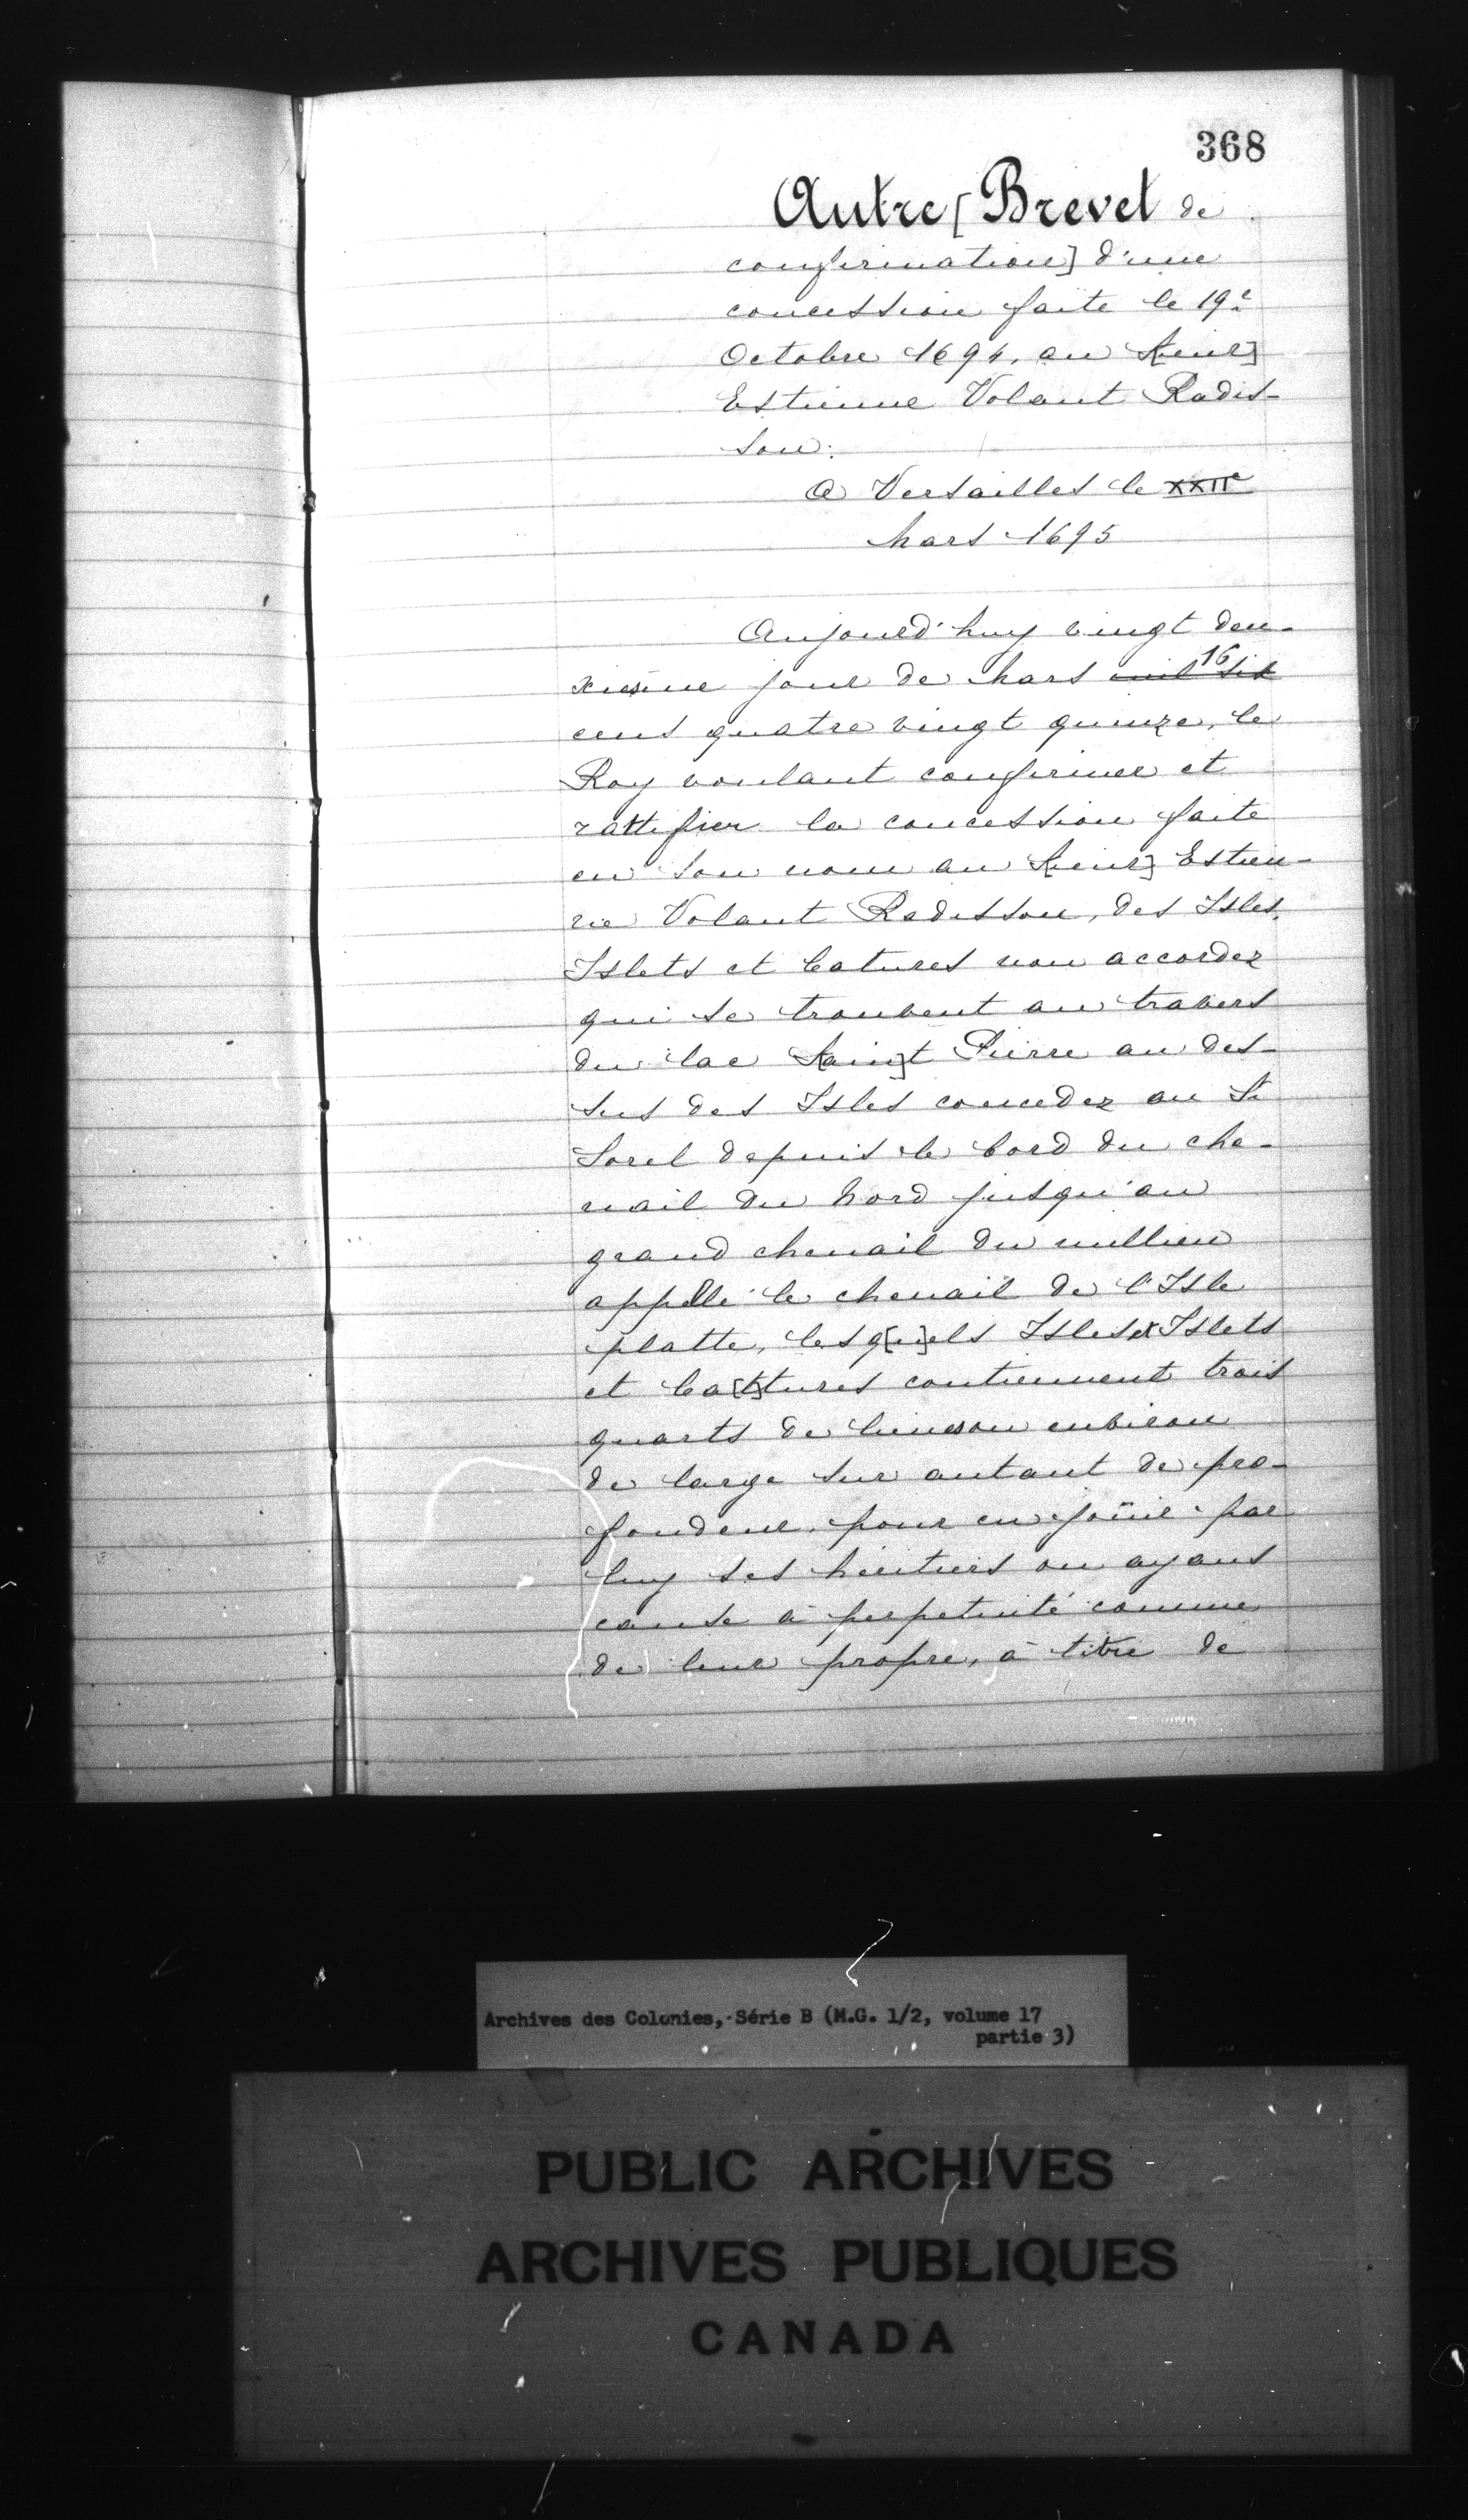 368
Autre [Brevet de
confirmation] d'une
concession faite le 19e
Octobre 1694, au S[ieur]
Estienne Volant Radis-
son.
A Versailles le XXIIe
Mars 1695
Aujourd'huy vingt deu-
xiesme jour de Mars mil 16 six
cens quatre vingt quinze, le
Roy voulant confirmer et
rattifier la concession faite
en son nom au S[ieur] Estien-
ne Volant Radisson, des Isles,
Islets et batures non accordez
qui se trouvent au travers
du lac S[ain]t Pierre au des-
sus des Isles concedez au Sr
Sorel depuis le bord du che-
nail du Nord jusqu'au
grand chenail du millieu
appellé le chenail de l'Isle
platte, lesq[u]els Isles et Islets
et ba[t]tures contiennent trois
quarts de lieue ou environ
de large sur autant de pro-
fondeur, pour en joüir par
luy ses héritiers ou ayans
cause à perpetuité comme
de leur propre, à titre de
Archives des Colonies, Série B (M.G. 1/2, volume 17
partie 3)
PUBLIC ARCHIVES
ARCHIVES PUBLIQUES
CANADA